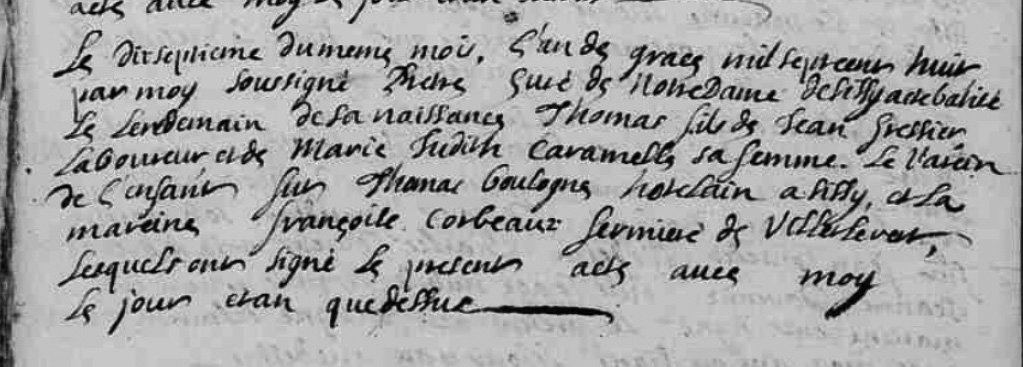 acte avec moy le jour et an
Le dixseptieme du meme mois, L'an de grace mil sept cent huit
par moy soussigné Prêtre Curé de Notre Dame de Silly a eté batisé
le lendemain de sa naissance Thomas fils de Jean Gressier
Laboureur et de Marie Judith Caramelle sa femme. Le Parein
de L'enfant fut Thomas boulogne hotelain a Silly, et La
mareine françoise Corbeaux fermiere de Villersvert,
Lesquels ont signé le present acte avec moy
le jour et an que dessus